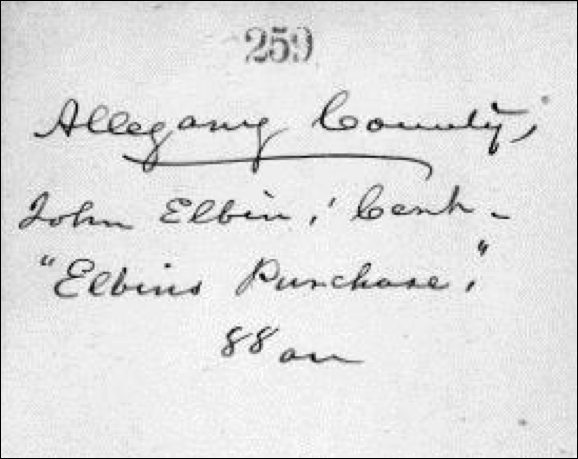 259
Allegany County,
John Elbin, Cert.
"Elbins Purchase,"
88 acr